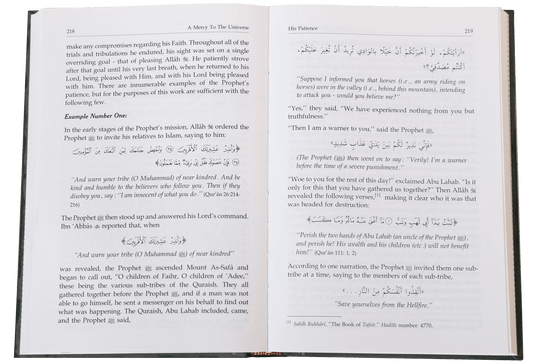 218
A Mercy To The Universe
make any compromises regarding his Faith. Throughout all of the
trials and tribulations he endured, his sight was set on a single
overriding goal - that of pleasing Allâh ﷻ. He patiently strove
after that goal until his very last breath, when he returned to his
Lord, being pleased with Him, and with his Lord being pleased
with him. There are innumerable examples of the Prophet's
patience, but for the purposes of this work are sufficient with the
following few.
Example Number One:
In the early stages of the Prophet's mission, Allâh ﷻ ordered the
Prophet ﷺ to invite his relatives to Islam, saying to him:
﴿وَأَنذِرْ عَشِيرَتَكَ الْأَقْرَبِينَ ﴿٢١٤﴾ وَاخْفِضْ جَنَاحَكَ لِمَنِ اتَّبَعَكَ مِنَ الْمُؤْمِنِينَ
﴿٢١٥﴾ فَإِنْ عَصَوْكَ فَقُلْ إِنِّي بَرِيءٌ مِّمَّا تَعْمَلُونَ﴾
"And warn your tribe (O Muhammad) of near kindred. And be
kind and humble to the believers who follow you. Then if they
disobey you, say: "I am innocent of what you do." (Qur'ân 26:214-
216)
The Prophet ﷺ then stood up and answered his Lord's command.
Ibn 'Abbâs reported that, when
﴿وَأَنذِرْ عَشِيرَتَكَ الْأَقْرَبِينَ﴾
"And warn your tribe (O Muhammad ﷺ) of near kindred"
was revealed, the Prophet ﷺ ascended Mount As-Safâ and
began to call out, "O children of Faihr, O children of 'Adee,"
these being the various sub-tribes of the Quraish. They all
gathered together before the Prophet ﷺ, and if a man was not
able to go himself, he sent a messenger on his behalf to find out
what was happening. The Quraish, Abu Lahab included, came,
and the Prophet ﷺ said,
His Patience
219
«أَرَأَيْتَكُمْ، لَوْ أَخْبَرْتُكُمْ أَنَّ خَيْلًا بِالْوَادِي تُرِيدُ أَنْ تُغِيرَ عَلَيْكُمْ،
أَكُنْتُمْ مُصَدِّقِيَّ؟»
"Suppose I informed you that horses (i.e., an army riding on
horses) were in the valley (i.e., behind this mountain), intending
to attack you - would you believe me?"
"Yes," they said, "We have experienced nothing from you but
truthfulness."
"Then I am a warner to you," said the Prophet ﷺ,
«فَإِنِّي نَذِيرٌ لَكُمْ بَيْنَ يَدَيْ عَذَابٍ شَدِيدٍ»
(The Prophet ﷺ) then went on to say: "Verily! I'm a warner
before the time of a severe punishment."
"Woe to you for the rest of this day!" exclaimed Abu Lahab. "Is it
only for this that you have gathered us together?" Then Allâh ﷻ
revealed the following verses,[1] making it clear who it was that
was headed for destruction:
﴿تَبَّتْ يَدَا أَبِي لَهَبٍ وَتَبَّ ﴿١﴾ مَا أَغْنَى عَنْهُ مَالُهُ وَمَا كَسَبَ﴾
"Perish the two hands of Abu Lahab (an uncle of the Prophet ﷺ),
and perish he! His wealth and his children (etc.) will not benefit
him!" (Qur'ân 111: 1, 2)
According to one narration, the Prophet ﷺ invited them one sub-
tribe at a time, saying to the members of each sub-tribe,
«أَنْقِذُوا أَنْفُسَكُمْ مِنَ النَّارِ...»
"Save yourselves from the Hellfire."
[1] Sahîh Bukhârî, "The Book of Tafsîr." Hadîth number: 4770.